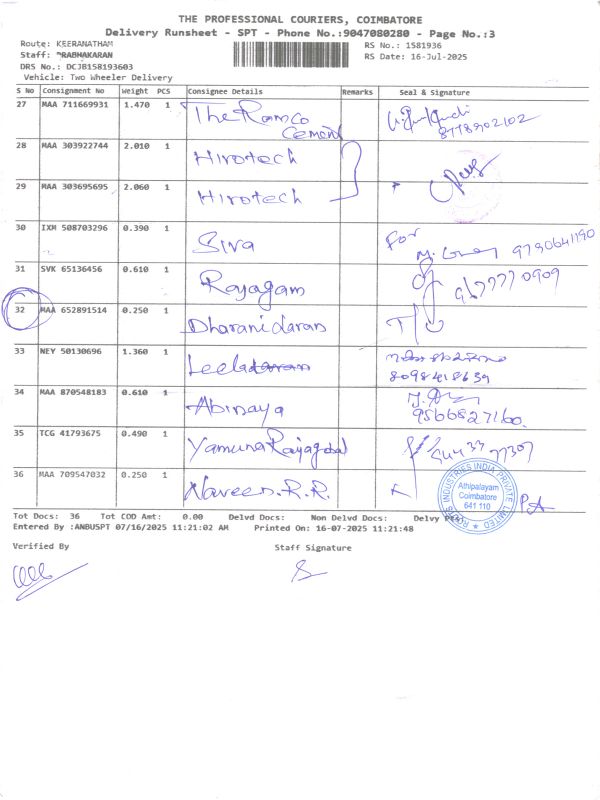 THE PROFESSIONAL COURIERS, COIMBATORE
Delivery Runsheet - SPT - Phone No.:9047080280 - Page No.:3
Route: KEERANATHAM RS No.: 1581936
Staff: PRABHAKARAN RS Date: 16-Jul-2025
DRS No.: DCJB158193603
Vehicle: Two Wheeler Delivery
S No Consignment No Weight PCS Consignee Details Remarks Seal & Signature
27 MAA 711669931 1.470 1 The Ramco Cement 8778902102
28 MAA 303922744 2.010 1 Hirotech
29 MAA 303695695 2.060 1 Hirotech
30 IXM 508703296 0.390 1 Siva For 9790641190
31 SVK 65136456 0.610 1 Rajagam
32 MAA 652891514 0.250 1 Dharanidaran
33 NEY 50130696 1.360 1 Leela
34 MAA 870548183 0.610 1 Abinaya 9566527160.
35 TCG 41793675 0.490 1 Yamuna
36 MAA 709547032 0.250 1 Naveen.R.R.
INDUSTRIES INDIA PRIVATE LIMITED
Athipalayam
Coimbatore
641 110
Tot Docs: 36 Tot COD Amt: 0.00 Delvd Docs: Non Delvd Docs: Delvy
Entered By :ANBUSPT 07/16/2025 11:21:02 AM Printed On: 16-07-2025 11:21:48
Verified By Staff Signature